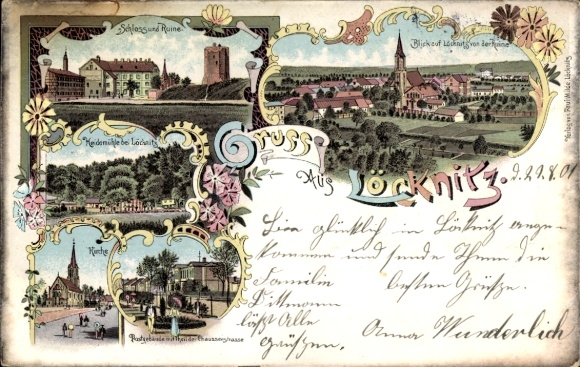 Schloss und Ruine.
Blick auf Löcknitz von der Ruine
Heidemühle bei Löcknitz
Gruss
Aus
Löcknitz.
d. 29.8.01
Kirche
Postgebäude mit Theil der Chausseestrasse
Bin glücklich in Löcknitz ange-
kommen und sende Ihnen die
Familie besten Grüße.
Dittmann
läßt Alle
grüßen. Anna Wunderlich
Verlag von Löcknitz